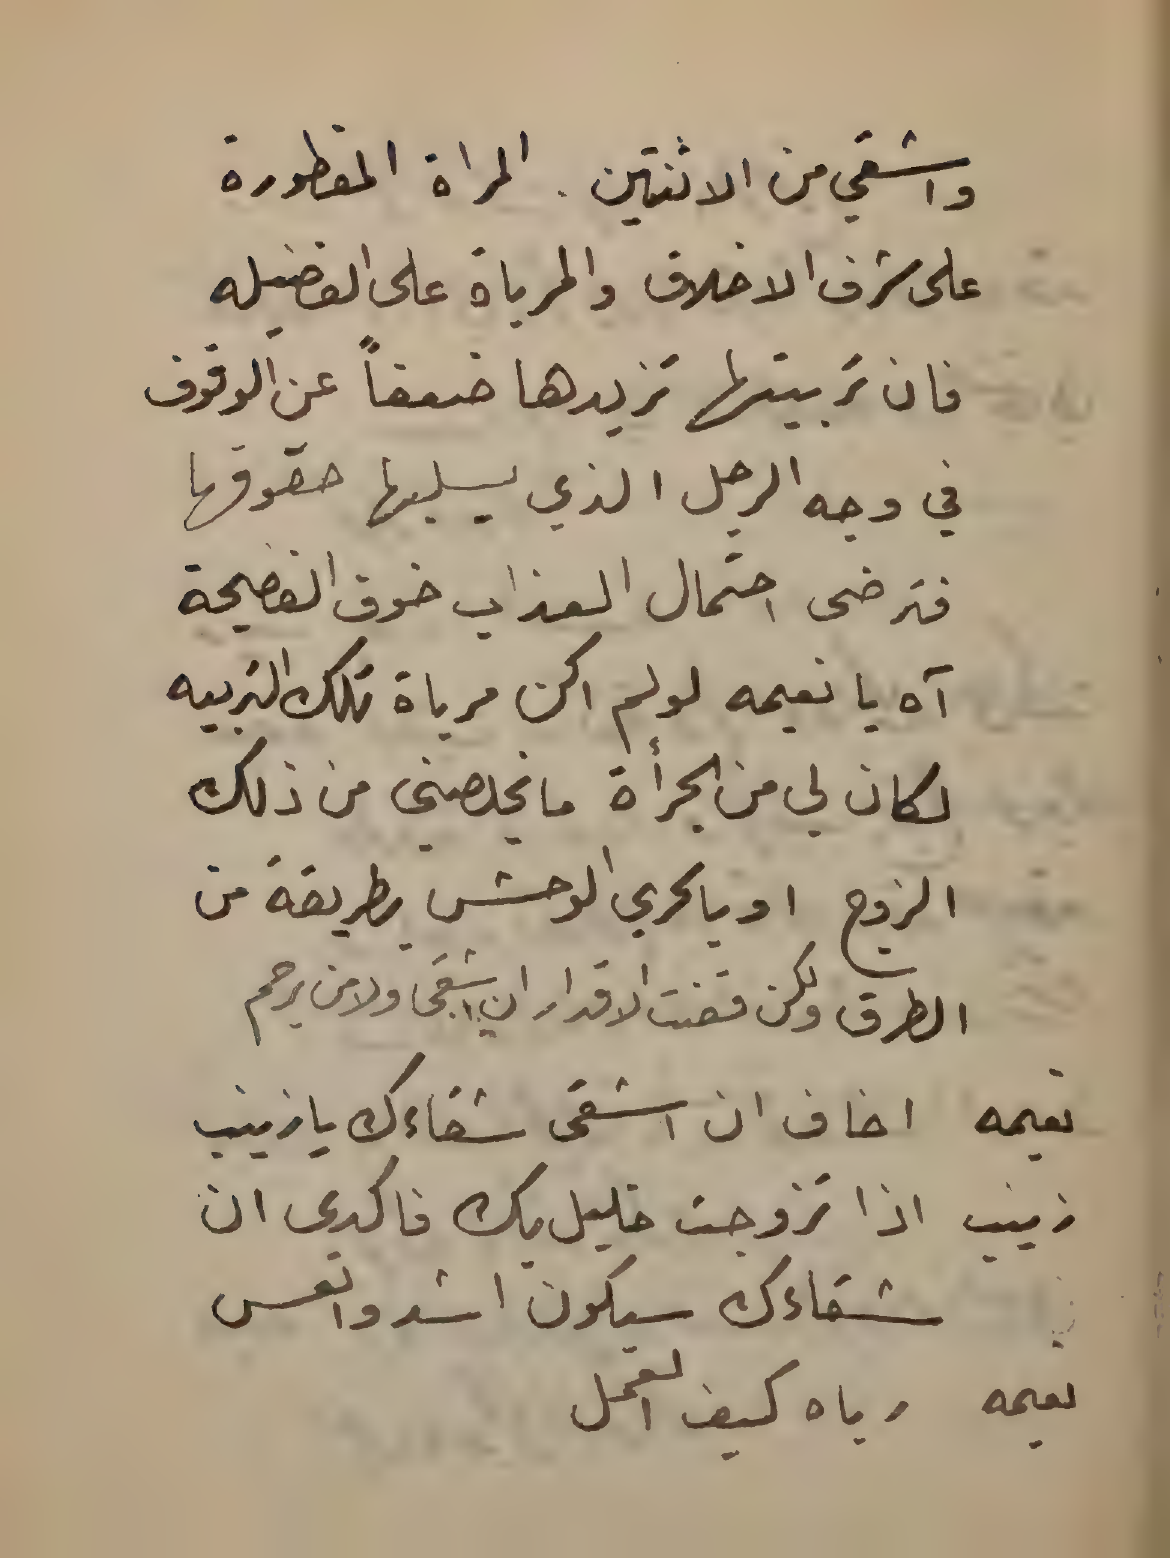 واشقي من الاثنتين . المراة المفطورة
على شرف الاخلاق والمرباة على الفضيله
فان تربيتها تزيدها ضعفاً عن الوقوف
في وجه الرجل الذي يسلبها حقوقها
فترضى احتمال العذاب خوف الفضيحة
آه يا نعيمه لو لم اكن مرباة تلك التربيه
لكان لي من الجرأة ما يخلصني من ذلك
الزوج او بالحري الوحش بطريقة من
الطرق ولكن قضت الاقدار ان اشقى ولا من يرحم
نعيمه اخاف ان اشقى شقاءك يا زينب
زينب اذا تزوجت خليل بك فاكدي ان
شقاءك سيكون اشد واتعس
نعيمه رباه كيف العمل